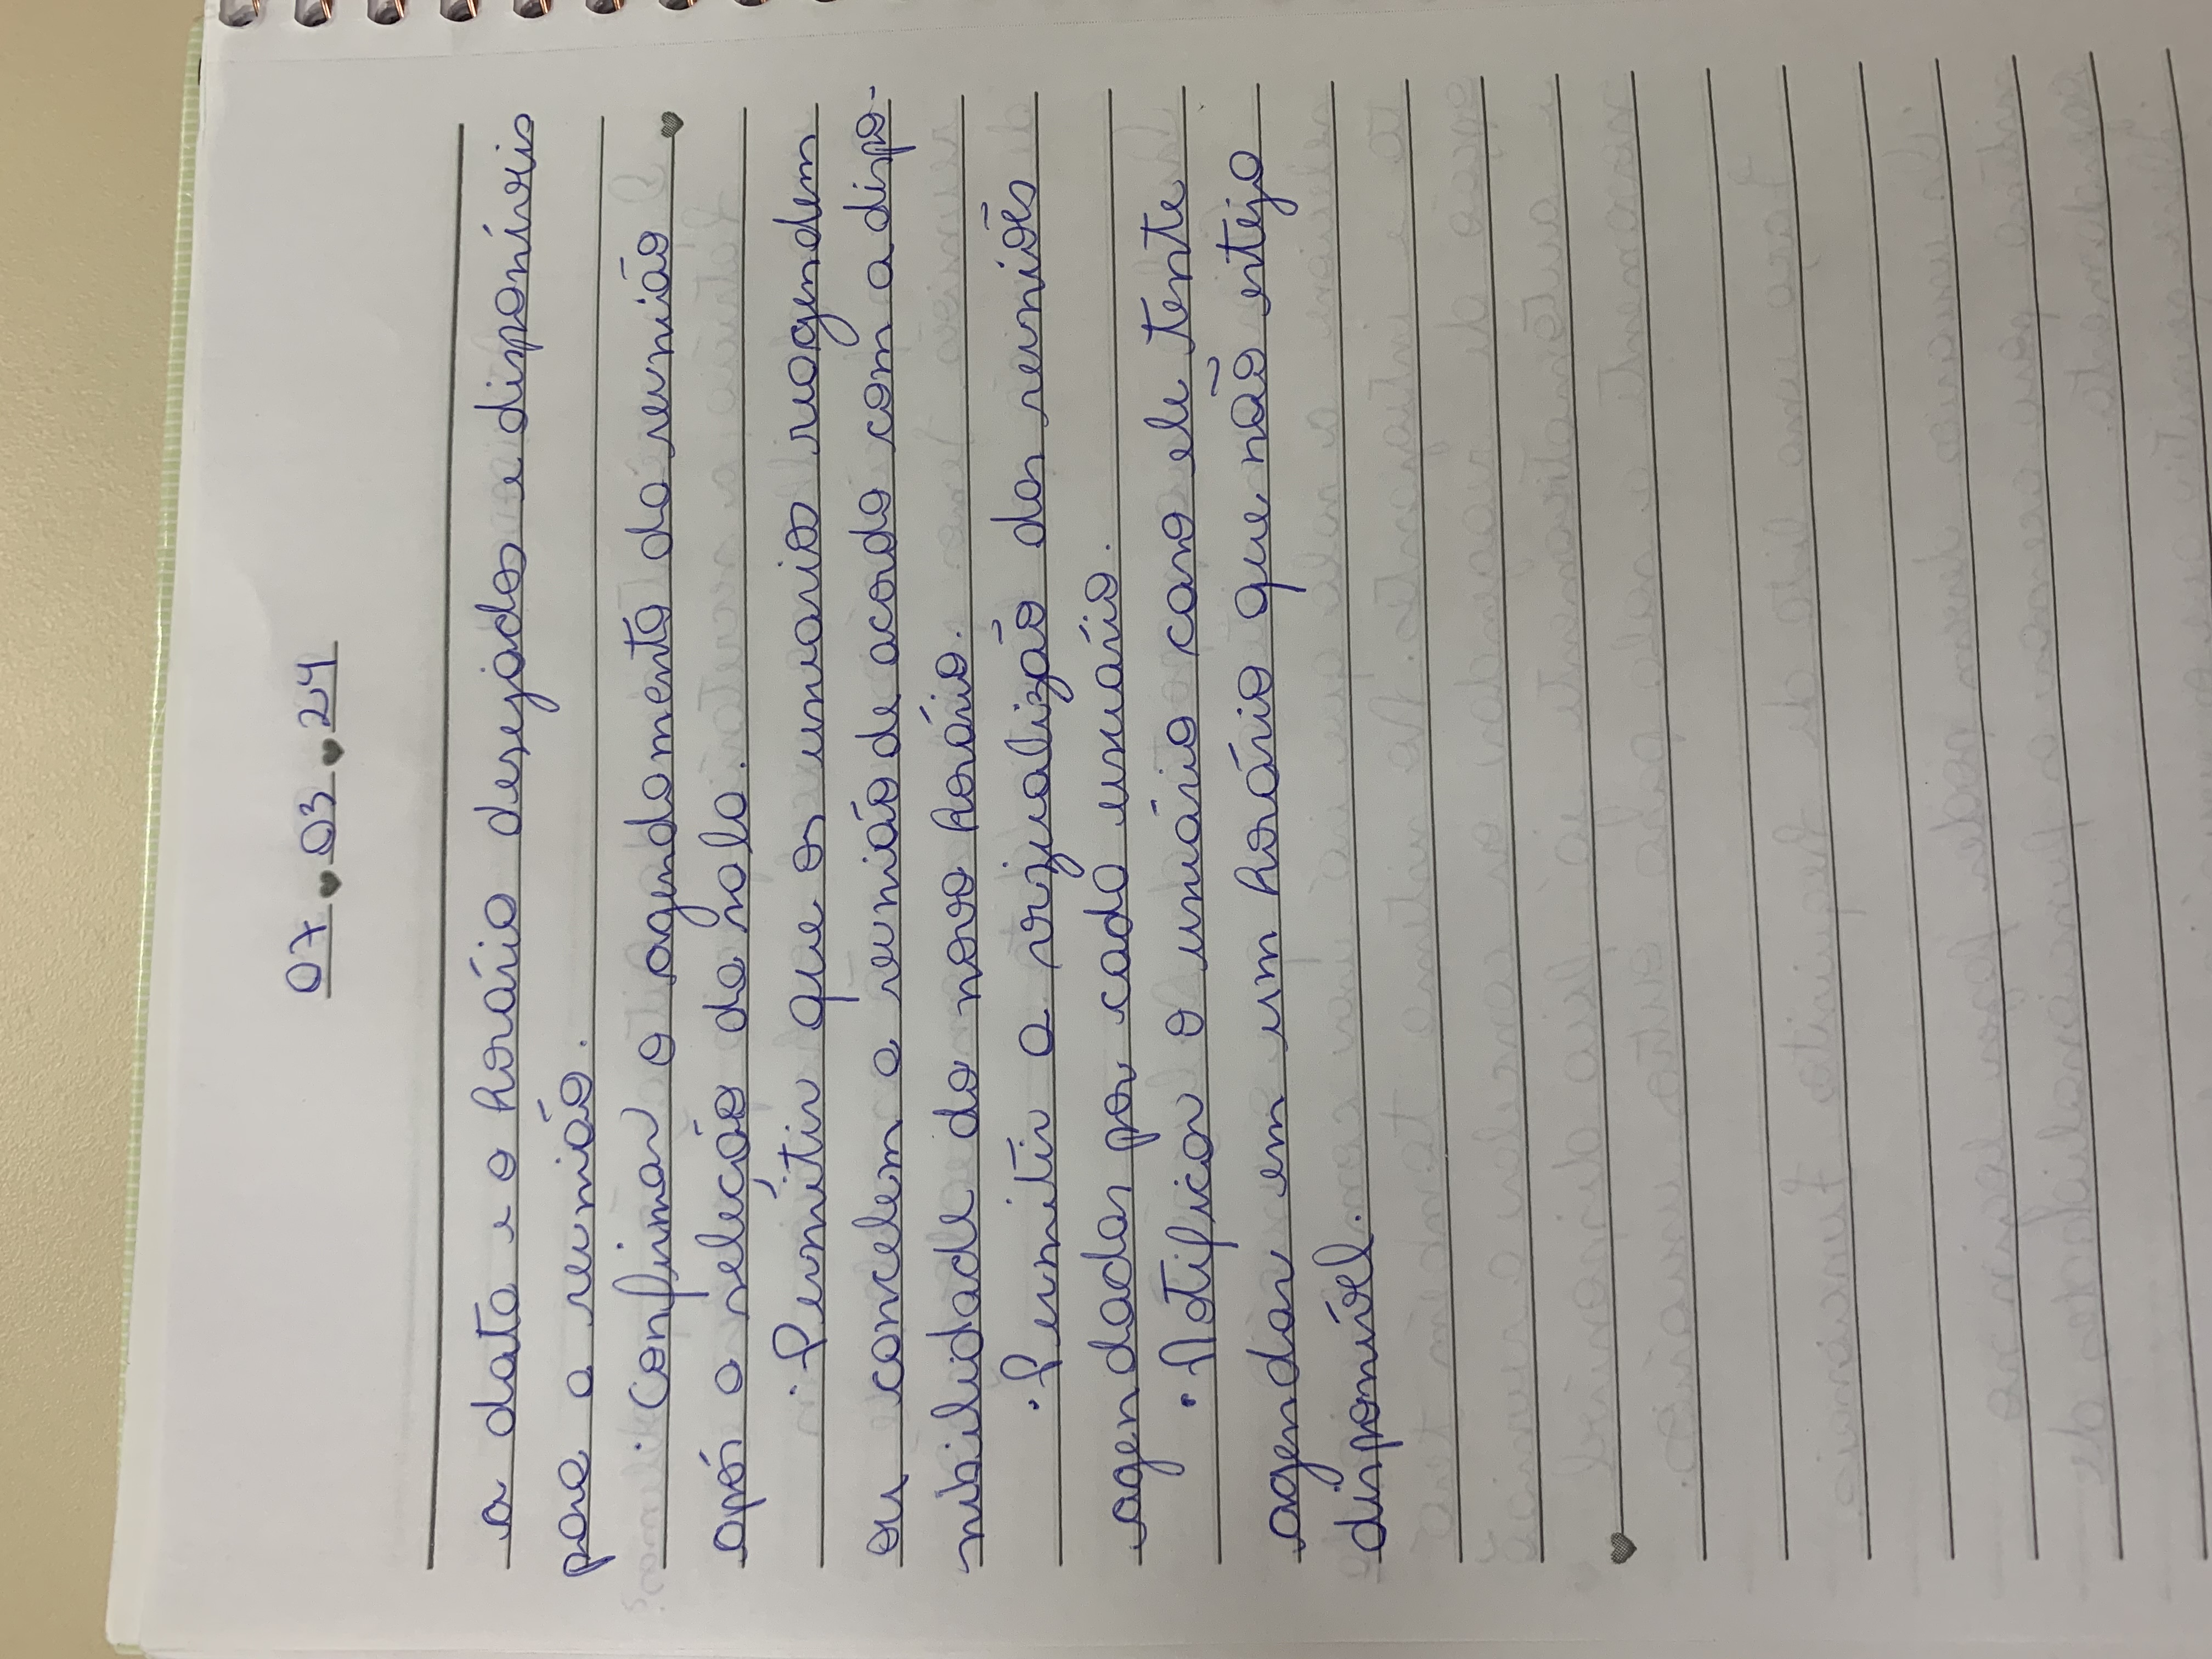 07 03 24
a data e o horário desejados e disponíveis
para a reunião.
· Confirmar o agendamento da reunião
após a seleção da sala.
· Permitir que os usuarios reagendem
ou cancelem a reunião de acordo com a dispo-
nibilidade do novo horário.
· Permitir a vizualizão das reuniões
agendadas por cada usuário.
· Notificar o usuário caso ele tente
agendar em um horário que não esteja
disponível.